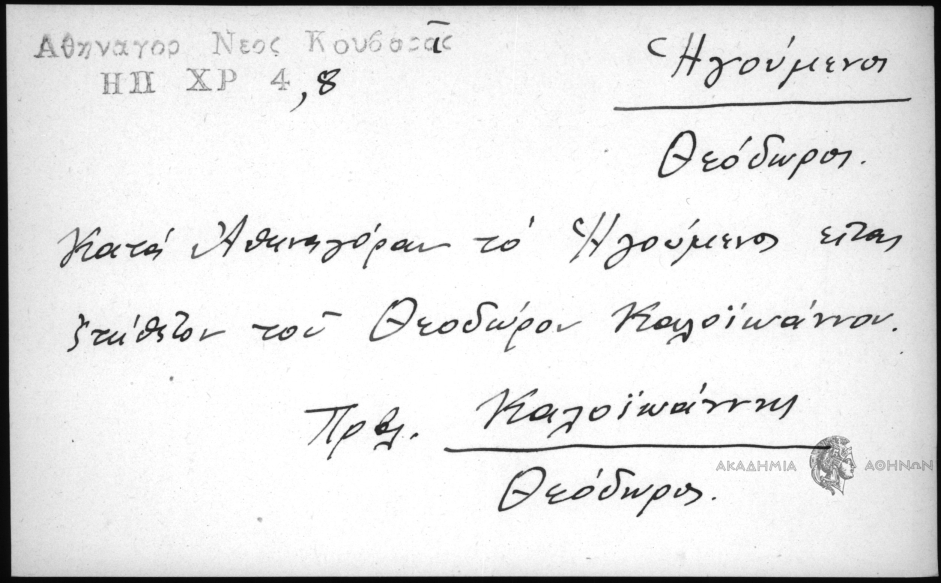 Αθηναγορ Νεος Κουβαρας
ΗΠ ΧΡ 4,8
Ἡγούμενος
Θεόδωρος.
Κατά Ἀθηναγόραν τό Ἡγούμενος εἶναι
ἐπίθετον τοῦ Θεοδώρου Καλοϊωάννου.
Πρβλ. Καλοϊωάννης
Θεόδωρος.
ΑΚΑΔΗΜΙΑ ΑΘΗΝΩΝ